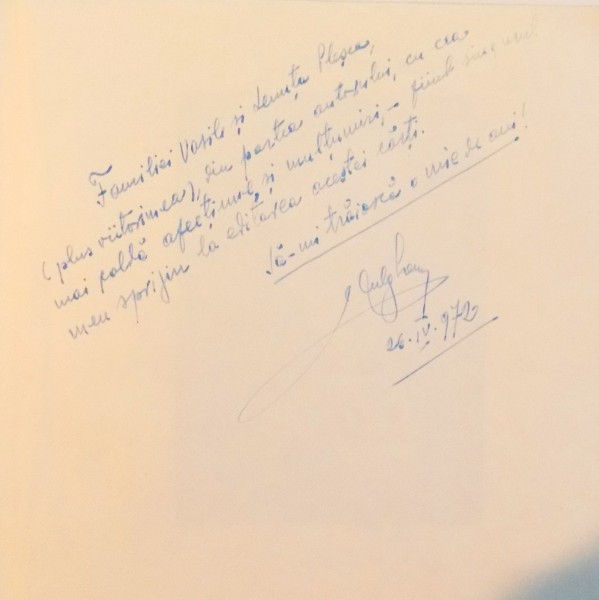 Familiei Vasile și Lenuța Pleșea,
(plus viitorimea), din partea autorului, cu cea
mai caldă afecțiune și mulțumiri, – fiind
meu sprijin la editarea acestei cărți.
Să-mi trăiască o mie de ani!
26.IV.972